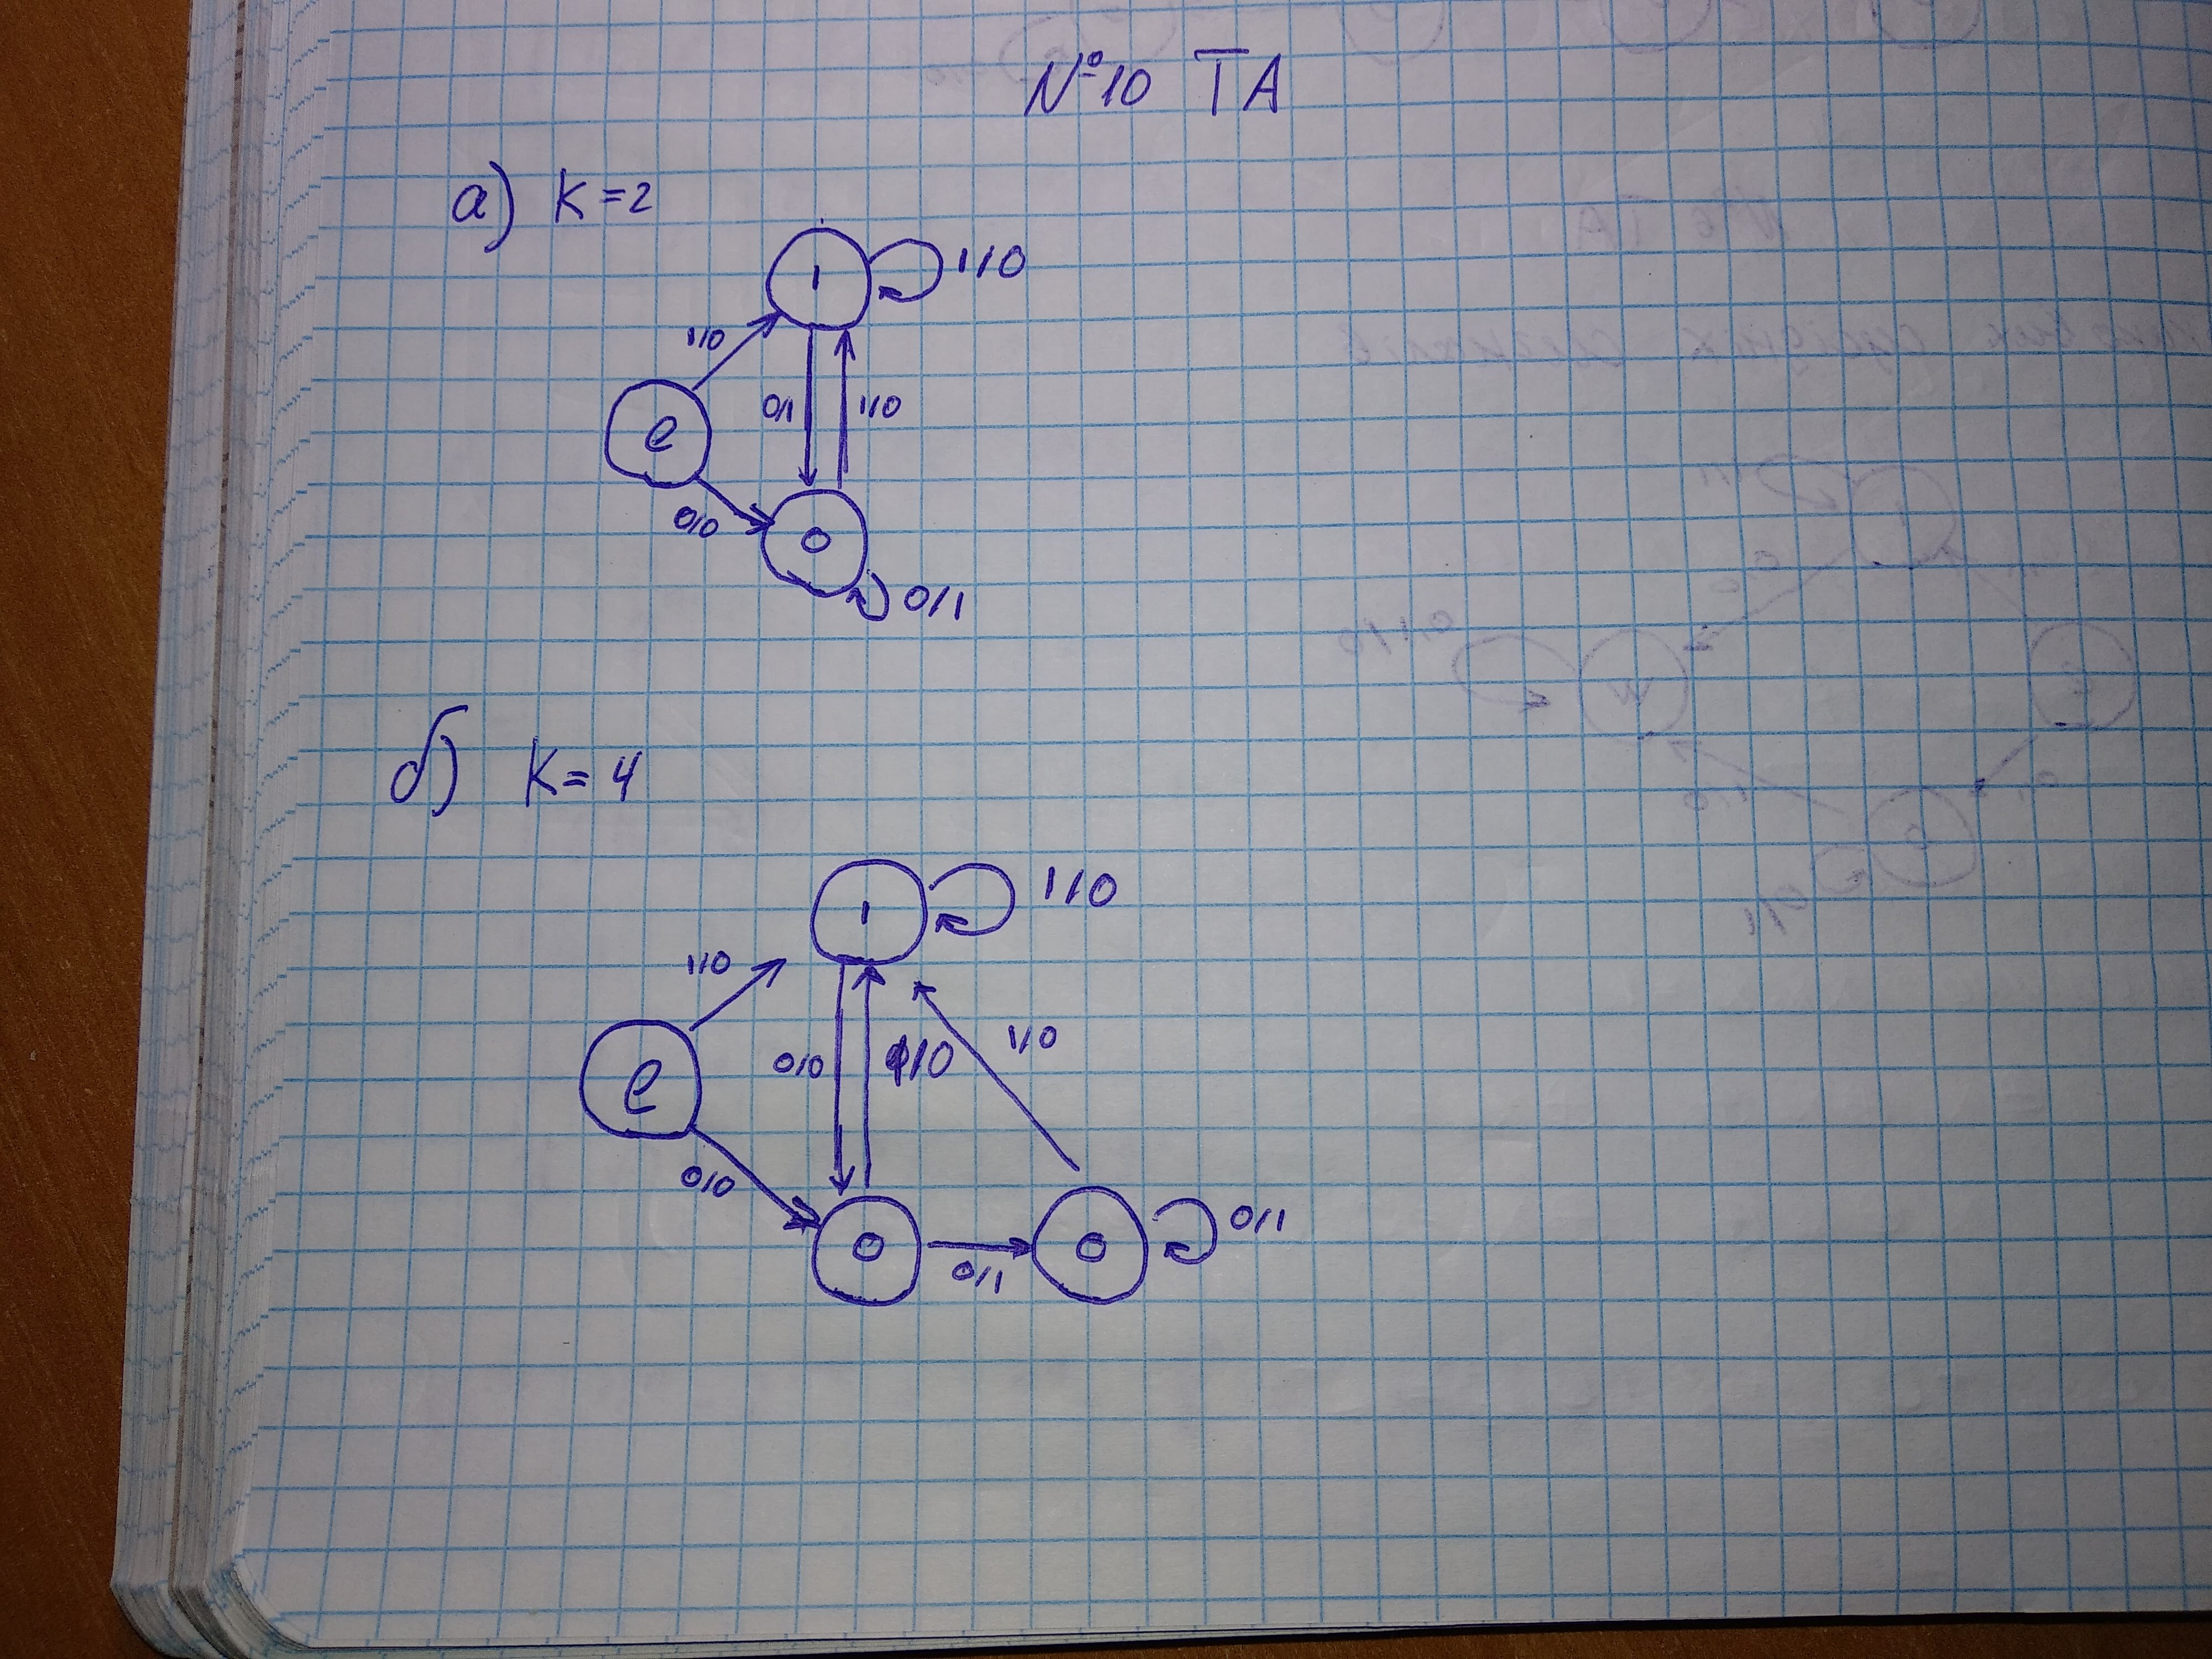 №10 TA
а) K=2
1 1/0
1/0
0/1 1/0
e
0/0
0
0/1
б) K=4
1 1/0
1/0
0/0 1/0 1/0
e
0/0
0 0 0/1
0/1